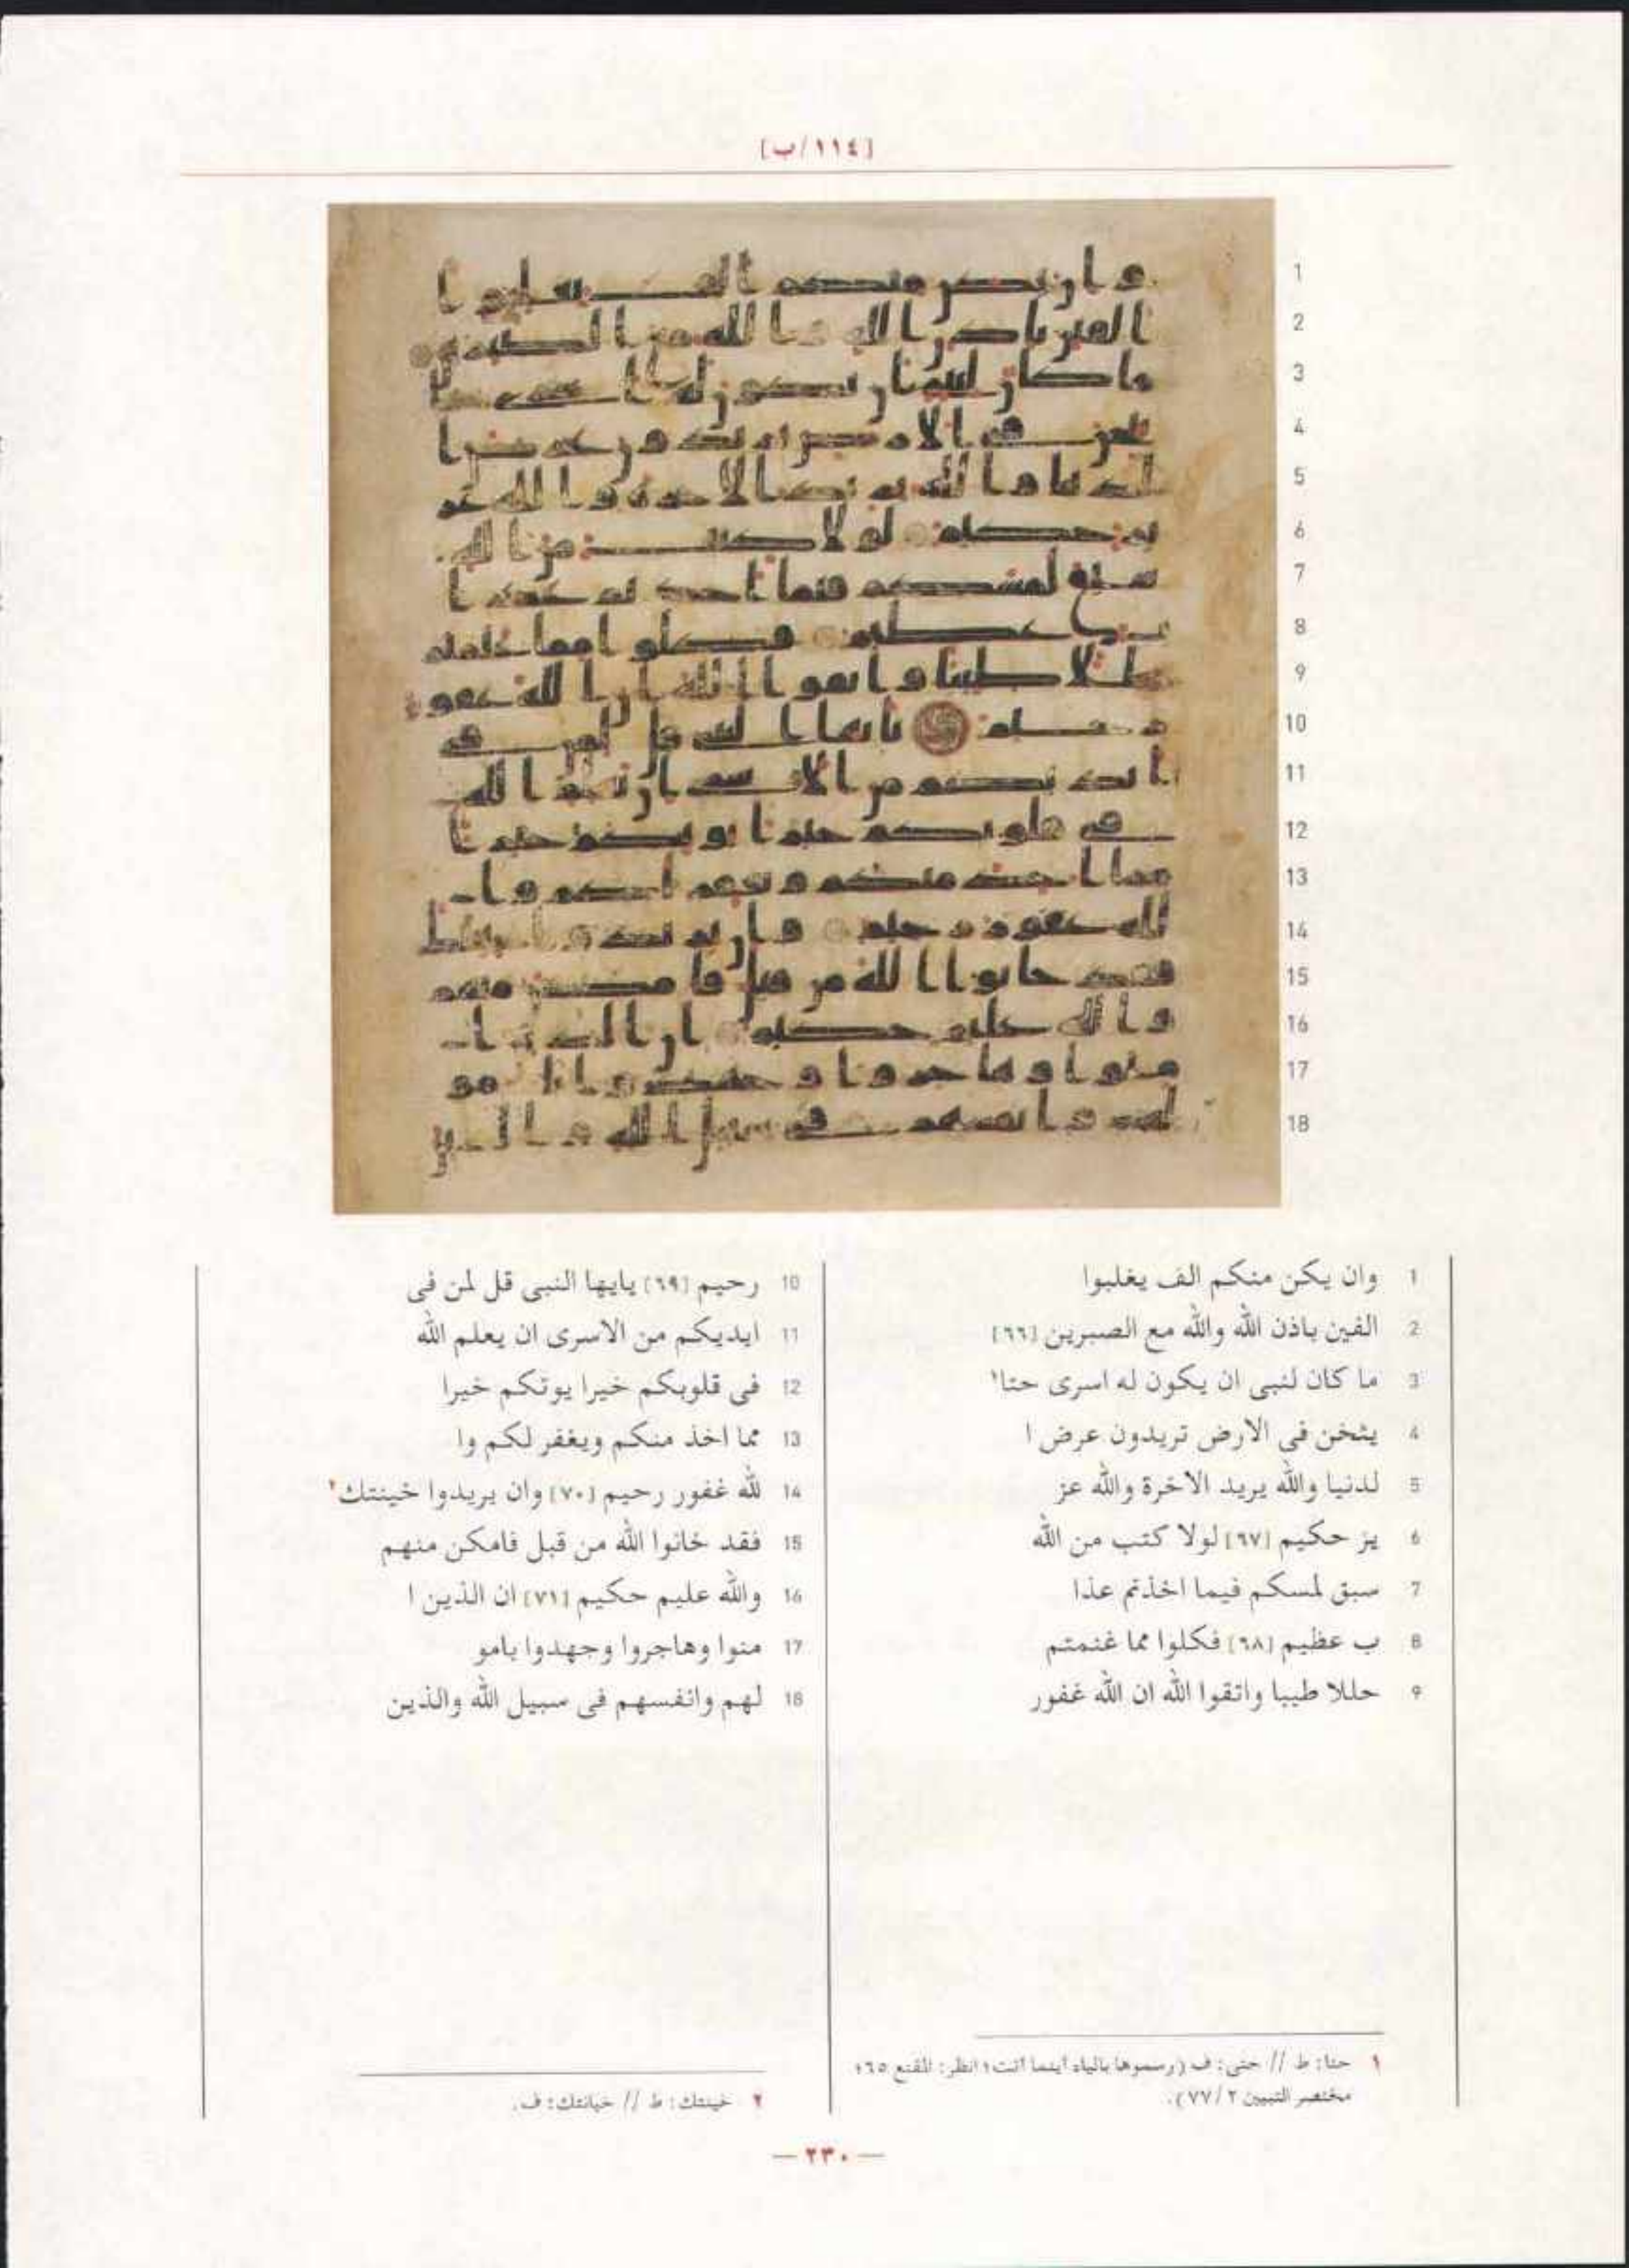 [١١٤/ب]
1
2
3
4
5
6
7
8
9
10
11
12
13
14
15
16
17
18
1 وان يكن منكم الف يغلبوا
2 الفين باذن الله والله مع الصبرين [٦٦]
3 ما كان لنبى ان يكون له اسرى حتا١
4 يثخن فى الارض تريدون عرض ا
5 لدنيا والله يريد الاخرة والله عز
6 يز حكيم [٦٧] لولا كتب من الله
7 سبق لمسكم فيما اخذتم عذا
8 ب عظيم [٦٨] فكلوا مما غنمتم
9 حللا طيبا واتقوا الله ان الله غفور
10 رحيم [٦٩] يايها النبى قل لمن فى
11 ايديكم من الاسرى ان يعلم الله
12 فى قلوبكم خيرا يوتكم خيرا
13 مما اخذ منكم ويغفر لكم وا
14 لله غفور رحيم [٧٠] وان يريدوا خينتك٢
15 فقد خانوا الله من قبل فامكن منهم
16 والله عليم حكيم [٧١] ان الذين ا
17 منوا وهاجروا وجهدوا بامو
18 لهم وانفسهم فى سبيل الله والذين
١ حتا: ط // حتى: ف (رسموها بالياء أينما أتت؛ انظر: المقنع ٦٥؛
مختصر التبيين ٢/ ٧٧).
٢ خينتك: ط // خيانتك: ف.
— ٢٣٠ —